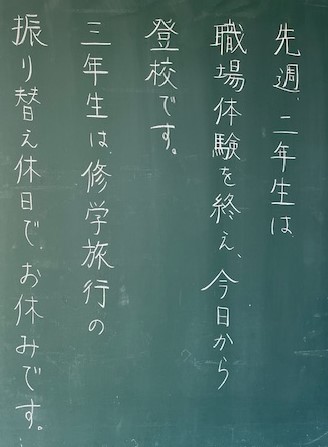 先週、二年生は
職場体験を終え、今日から
登校です。
三年生は、修学旅行の
振り替え休日で、お休みです。